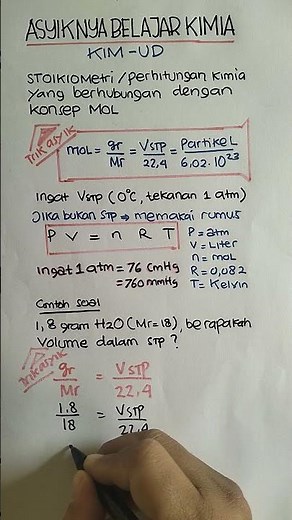 ASYIKNYA BELAJAR KIMIA
KIM-UD
STOIKIOMetri/perhitungan kimia
yang berhubungan dengan
konsep MOL
Trik asyik
mol = gr/Mr = VSTP/22,4 = Partikel/6,02.10²³
Ingat VSTP (0°C, tekanan 1 atm)
Jika bukan STP → memakai rumus
P V = n R T
P = atm
V = Liter
n = mol
R = 0,082
T = Kelvin
Ingat 1 atm = 76 CmHg
= 760 mmHg
Contoh soal
1,8 gram H2O (Mr=18), berapakah
Volume dalam STP ?
Trik asyik
gr/Mr = VSTP/22,4
1.8/18 = VSTP/22,4